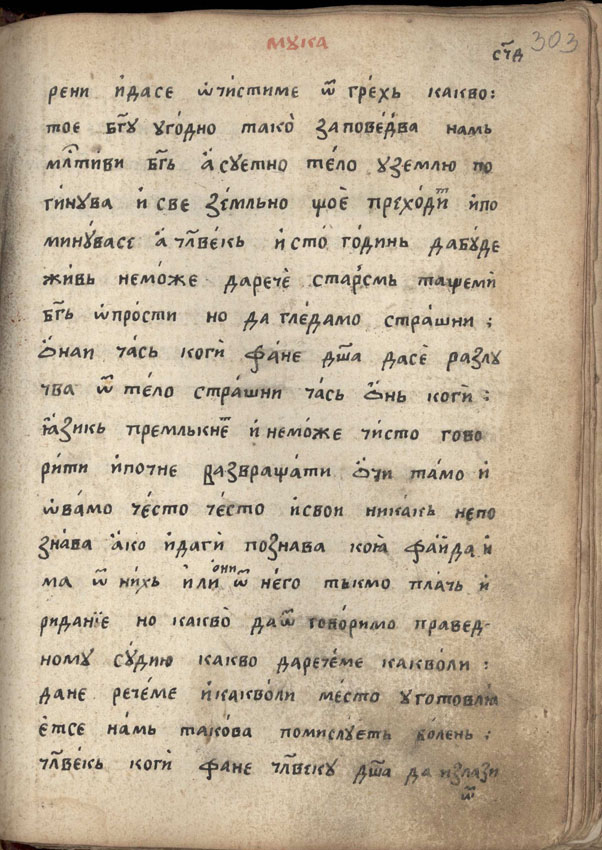 мꙋка
счд 303
рени и҆дасе ѡ҆чи́стиме ѿ гре́хь какво:
тое бг҃ꙋ ꙋго́дно тако̀ заповѣ́два намь
млⷭ҇тиви бг҃ь а҆сꙋетно те́ло ꙋземлю по
ги́нꙋва и҆ све зе́мльно щоѐ прехо́дитⷨ и҆по
минꙋ́васе а҆ чл҃ве́кь и҆сто̀ го́динь дабꙋ́де
жи́вь немо́же даречѐ ста́рсмь та
бг҃ь ѡ҆про́сти но да гле́дамо стра́шни ;
о҆́наи ча́сь коги̏ фа́не дш҃а дасѐ разлꙋ
чва ѿ те́ло стра́шни ча́сь о҆́нь коги̏ ;
ꙗ҆зи́кь премлькнеⷮ и҆ немо́же чи́сто гово
ри́ти и҆почне развраща́ти о҆́чи та́мо и҆
ѡ҆ва́мо че́сто че́сто и҆свои никакь непо
знава а҆́ко и҆даги̏ познава коꙗ̀ фа́йда и҆
ма ѿ ни́хь и҆ли̏ они ѿ не́го тькмо пла́чь и҆
рида́нїе но какво̀ даѿ гово́римо праведⸯ
номꙋ сꙋ́дию какво дарече́ме какво́ли :
дане рече́ме и҆какво́ли ме́сто ꙋготовлꙗ
е҆тсе на́мь тако́ва помислꙋ́еть бо́лень ;
чл҃ве́кь коги̏ фане чл҃векꙋ дш҃а да излази
ѿ